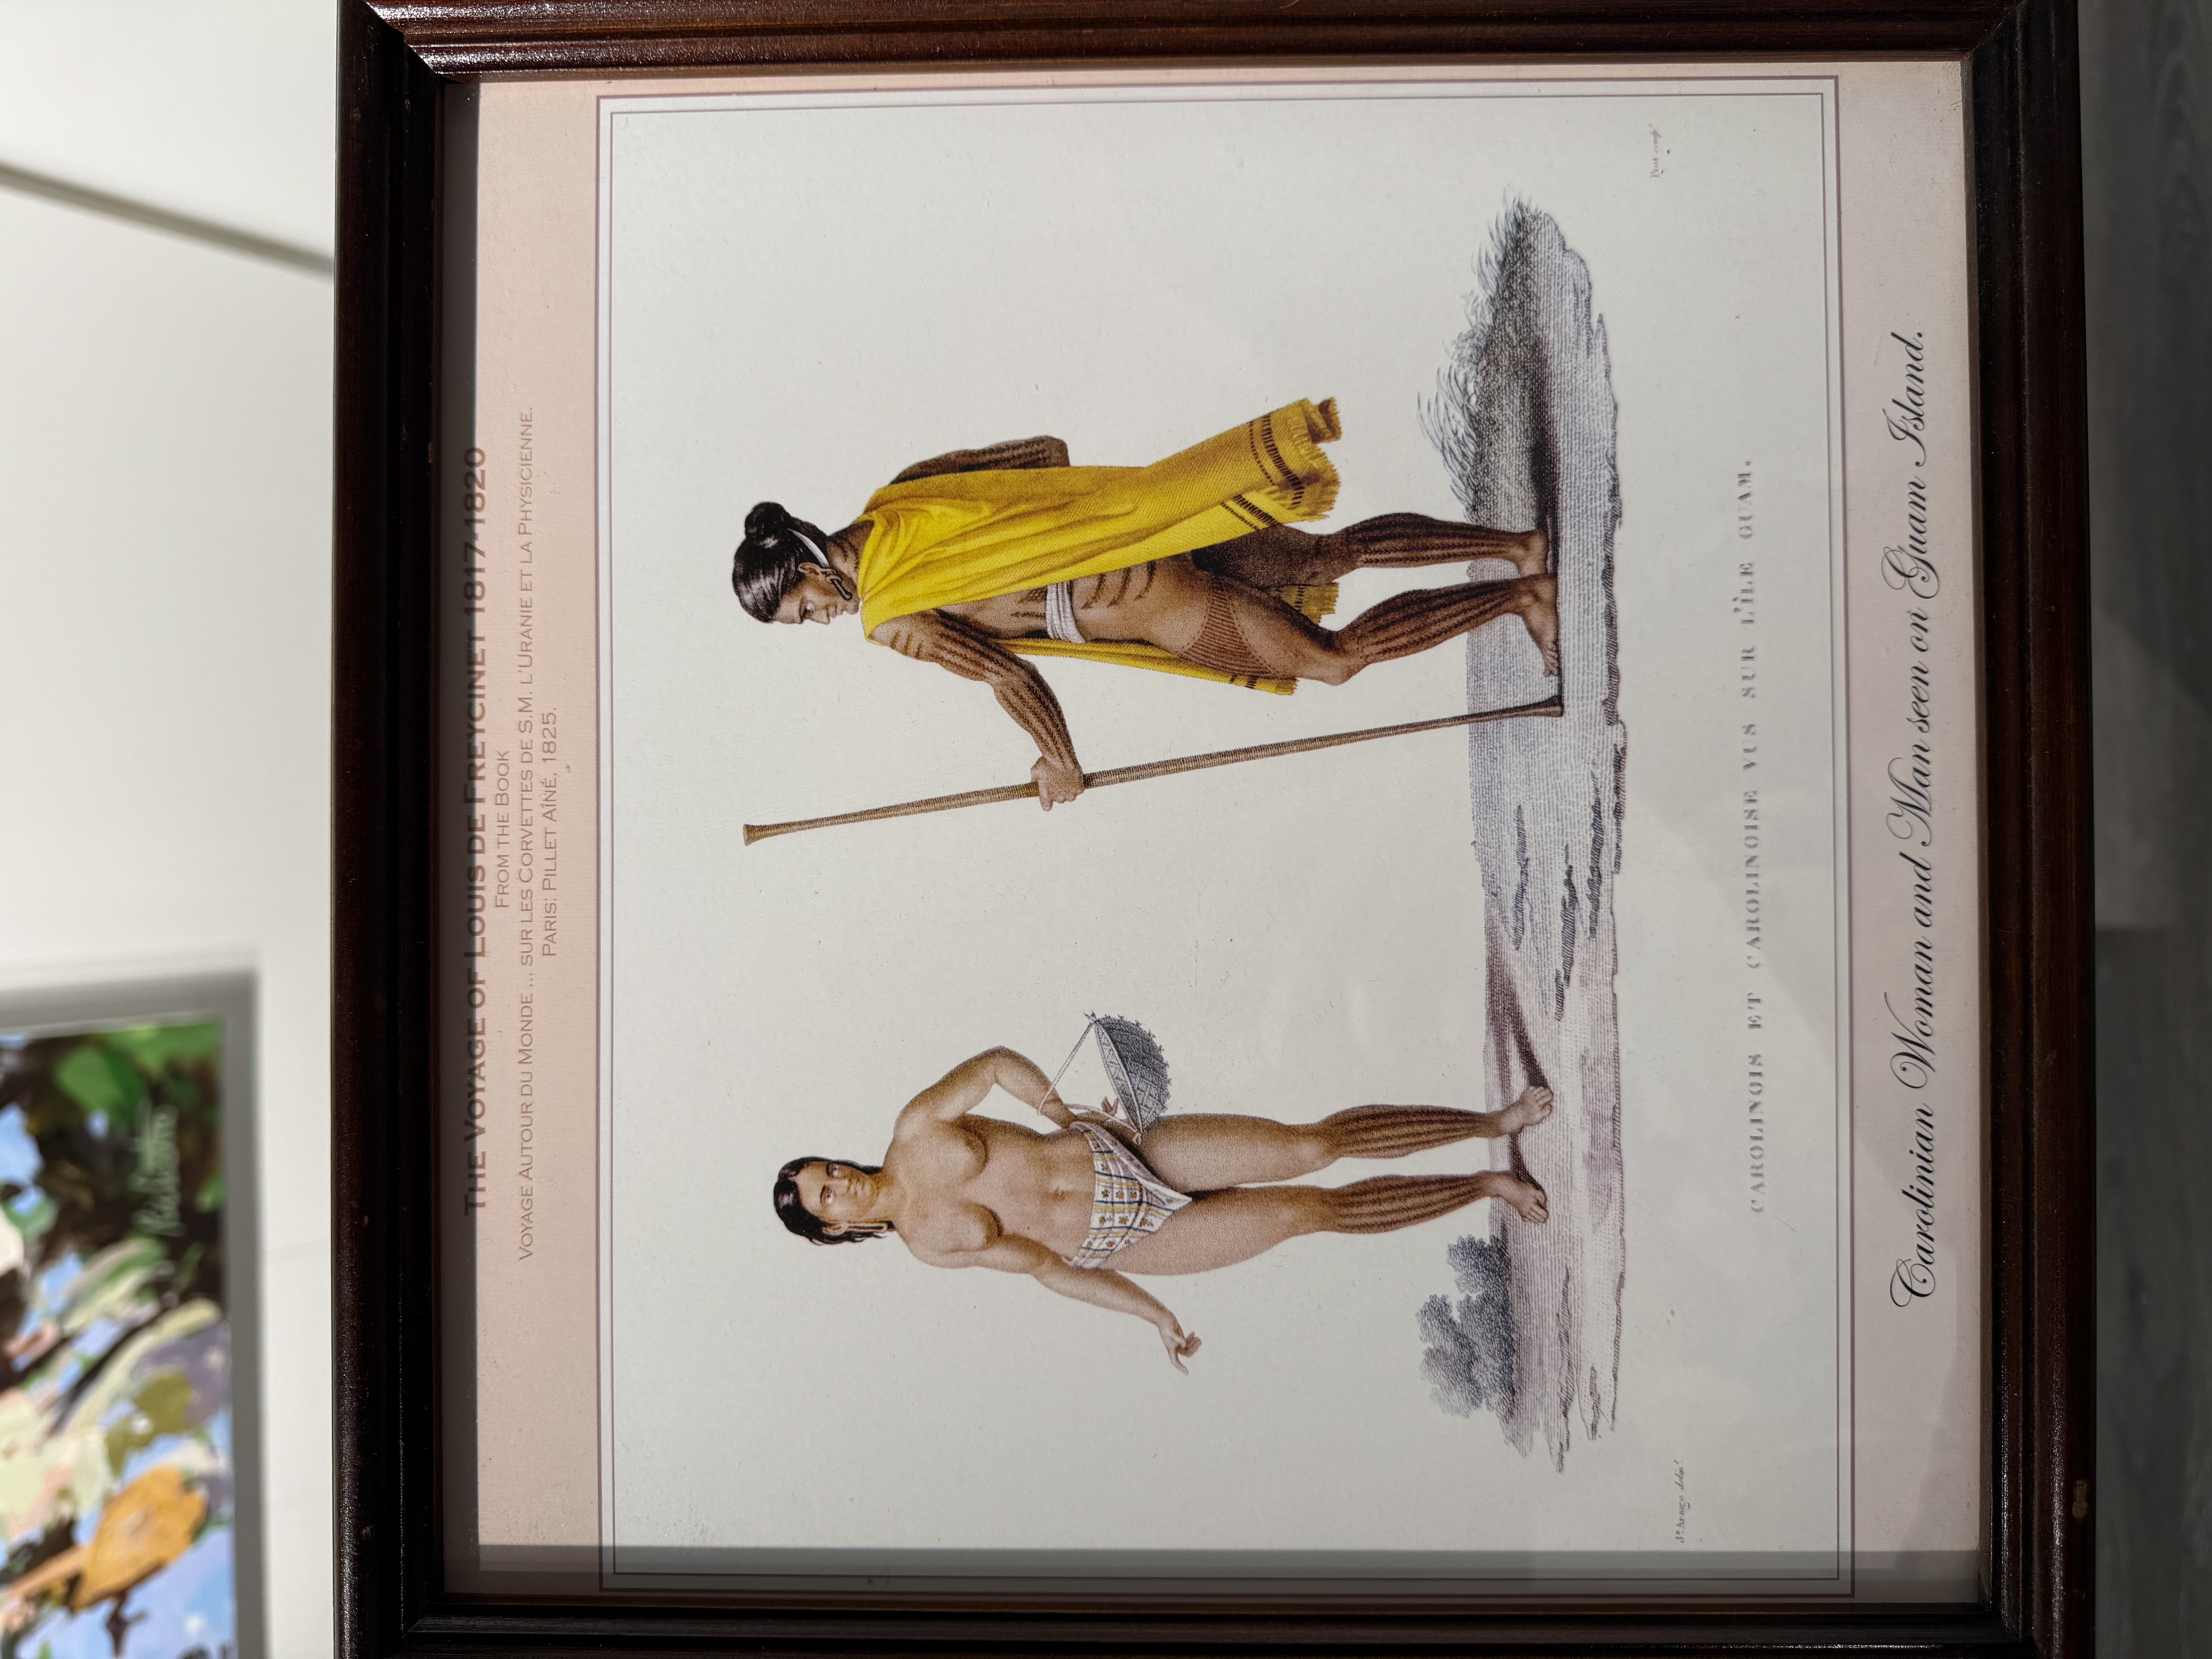 THE VOYAGE OF LOUIS DE FREYCINET 1817-1820
FROM THE BOOK
VOYAGE AUTOUR DU MONDE ... SUR LES CORVETTES DE S.M. L'URANIE ET LA PHYSICIENNE.
PARIS: PILLET AÎNÉ, 1825.
CAROLINOIS ET CAROLINOISE VUS SUR L'ÎLE GUAM.
Carolinian Woman and Man seen on Guam Island.